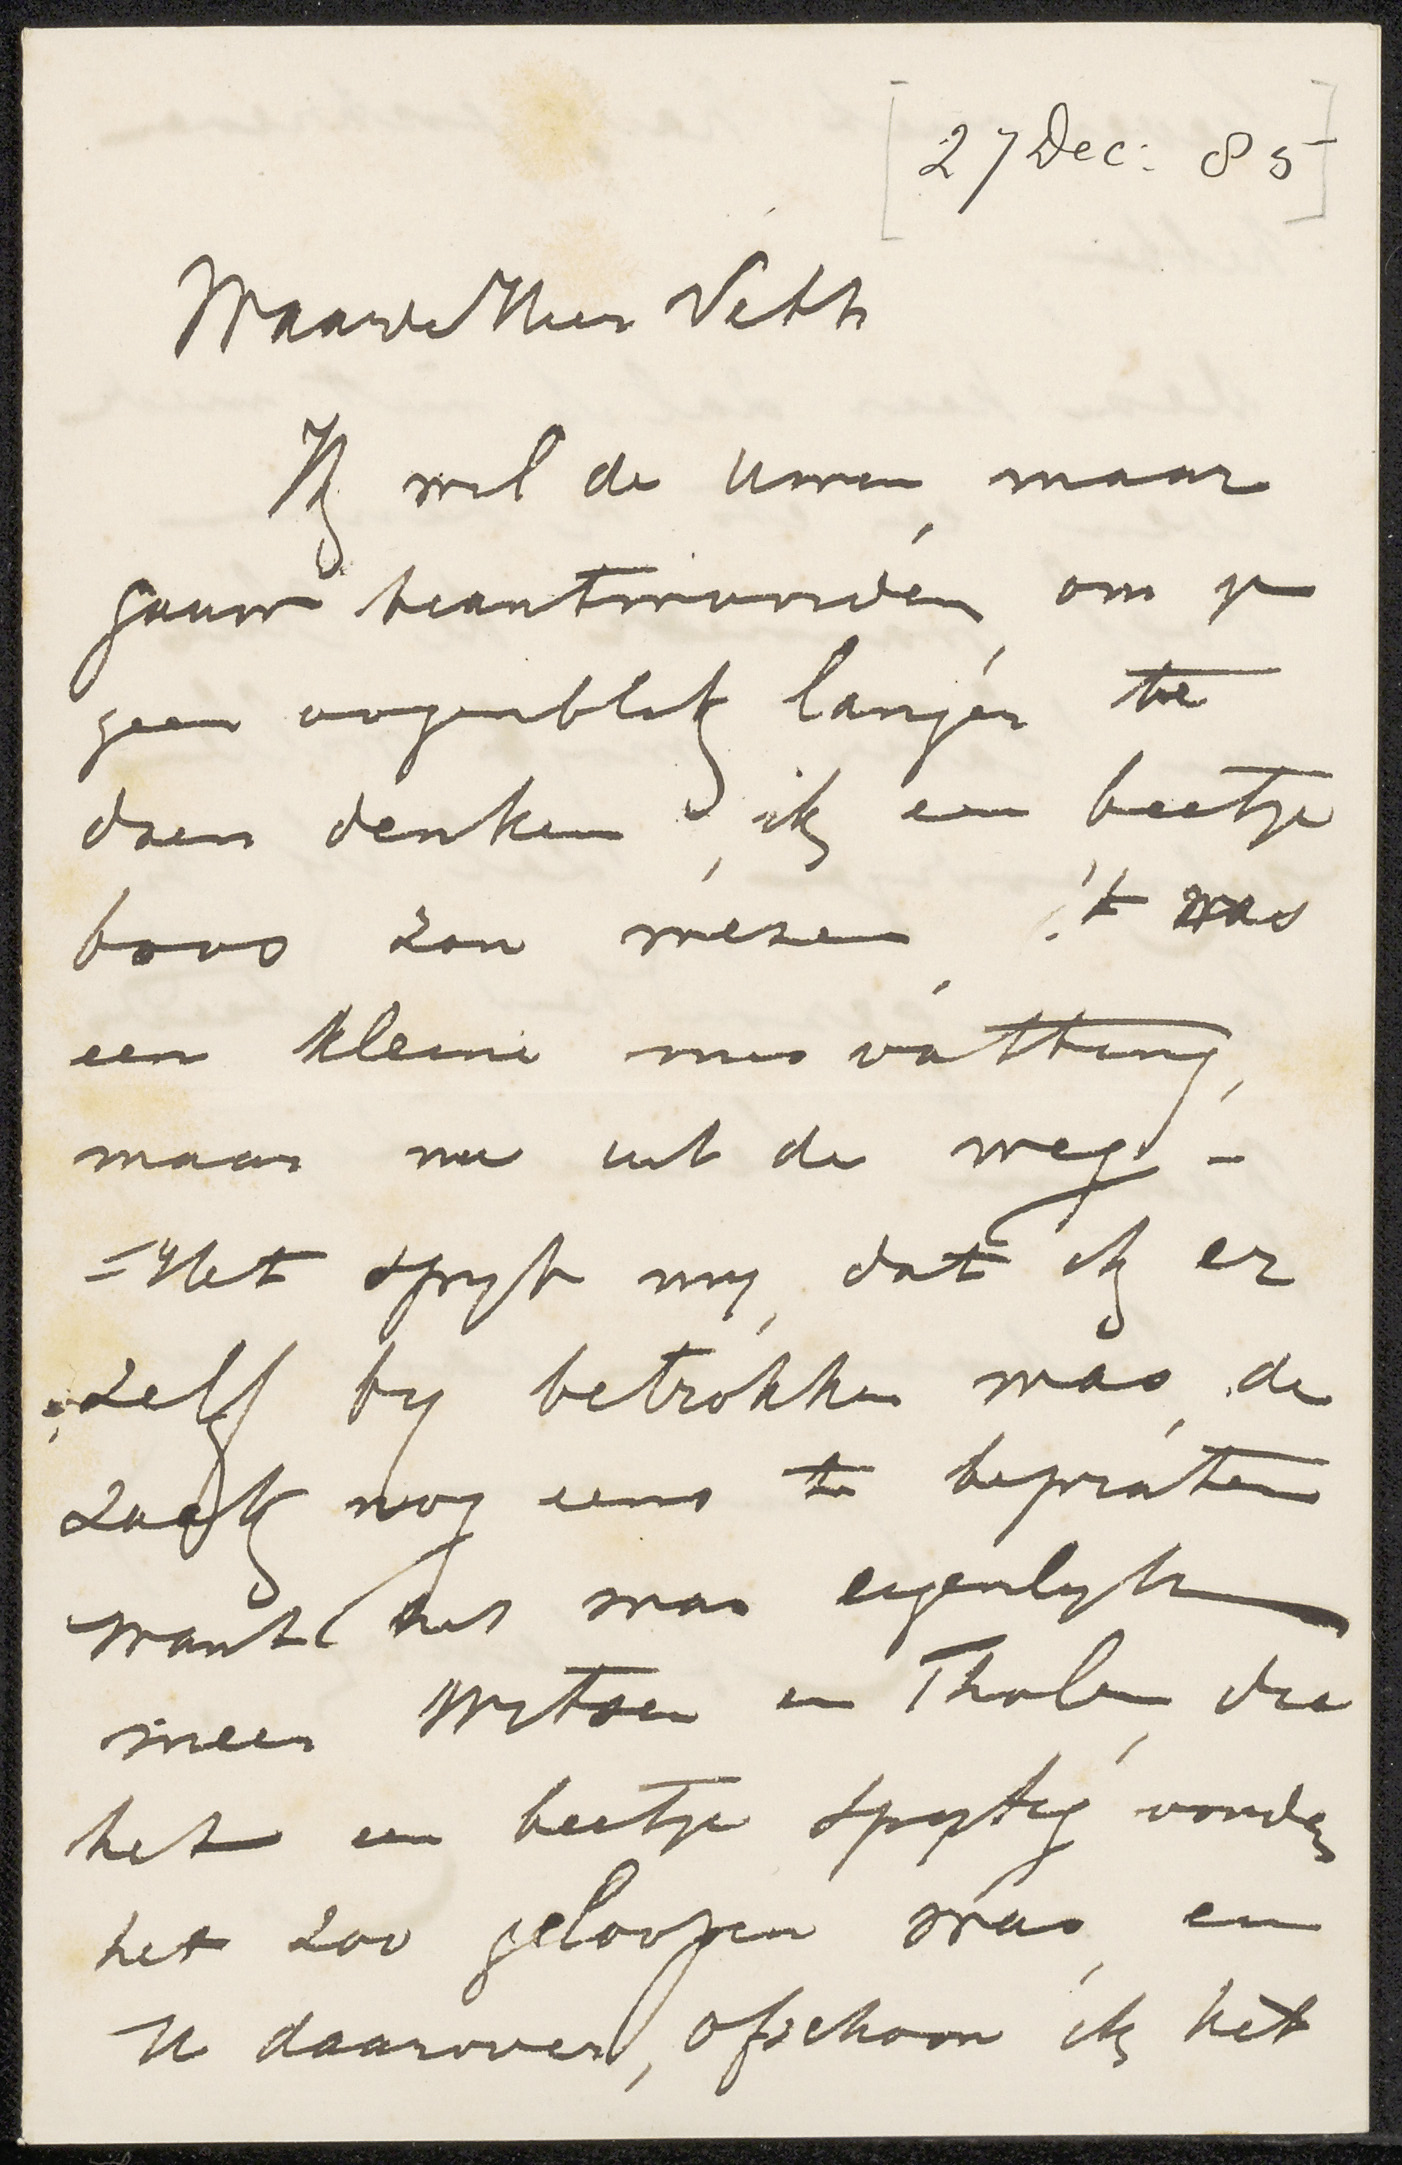 [27 Dec: 85]
Waarde Heer Veth
Ik wil de Uwen, maar
gauw beantwoorden, om U
geen oogenblik langer te
doen denken, ik een beetje
boos zou wezen, 't was
een kleine misvatting,
maar nu uit de weg. –
= Het spijt mij, dat ik er
zelf bij betrokken was, de
zaak nog eens te bepraten
want het was eigenlijk
meer Witsen en Tholen, die
het een beetje spijtig vonden
het zoo geloopen was, en
U daarover, ofschoon ik het